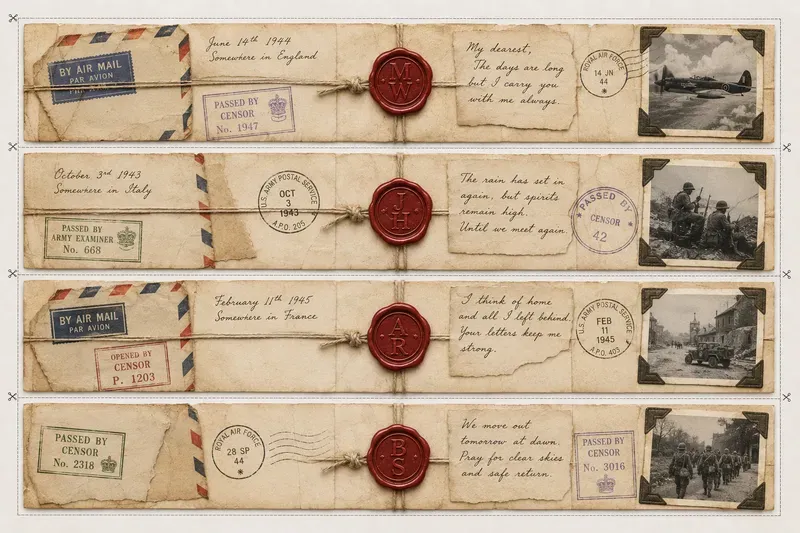 BY AIR MAIL
PAR AVION
June 14th 1944
Somewhere in England
PASSED BY
CENSOR
No. 1947
M
W
My dearest,
The days are long
but I carry you
with me always.
ROYAL AIR FORCE
14 JN
44
October 3rd 1943
Somewhere in Italy
PASSED BY
ARMY EXAMINER
No. 668
U.S. ARMY POSTAL SERVICE
OCT
3
1943
A.P.O. 205
J
H
The rain has set in
again, but spirits
remain high.
Until we meet again.
PASSED BY
CENSOR
42
BY AIR MAIL
PAR AVION
OPENED BY
CENSOR
P. 1203
February 11th 1945
Somewhere in France
A
R
I think of home
and all I left behind.
Your letters keep me
strong.
U.S. ARMY POSTAL SERVICE
FEB
11
1945
A.P.O. 403
PASSED BY
CENSOR
No. 2318
ROYAL AIR FORCE
28 SP
44
B
S
We move out
tomorrow at dawn.
Pray for clear skies
and safe return.
PASSED BY
CENSOR
No. 3016